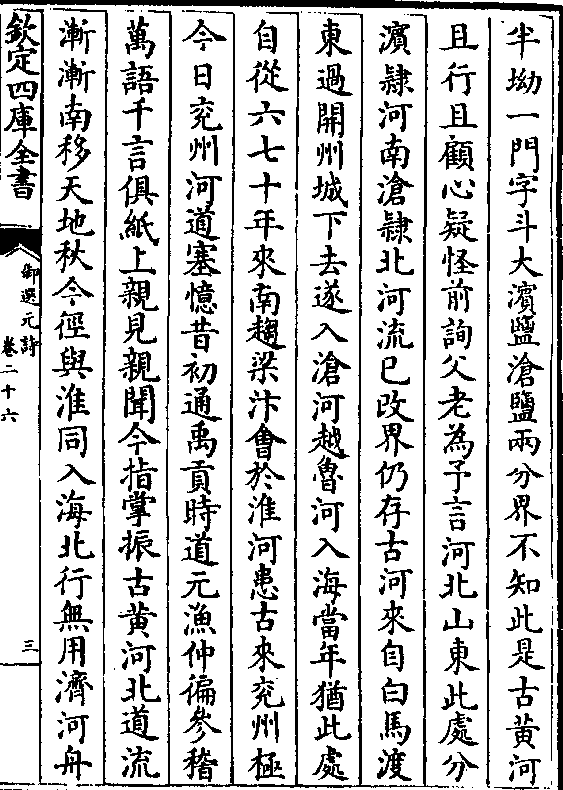 半㘭一門字斗大濵鹽滄鹽兩分界不知此是古黄河
且行且顧心疑怪前詢父老為予言河北山東此處分
濵隷河南滄隷北河流已改界仍存古河來自白馬渡
東過開州城下去遂入滄河越魯河入海當年猶此處
自從六七十年來南趨梁汴會於淮河患古來兖州極
今日兖州河道塞憶昔初通禹貢時道元漁仲徧參稽
萬語千言俱紙上親見親聞今指掌振古黄河北道流
漸漸南移天地秋今徑與淮同入海北行無用濟河舟
欽定四庫全書
御選元詩
卷二十六
三